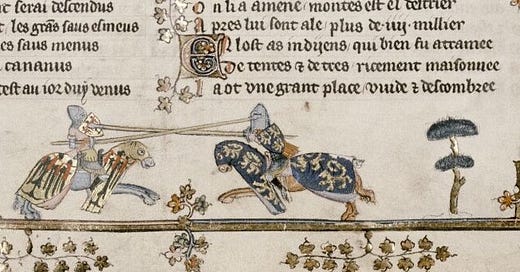 serai descendus
les grans saus esmeus
saus menus
cananus
au ior duy venus
on li a amene / montes est el destrier
apres lui sont ale / plus de .iiij. millier
El ost as indyens / qui bien fu
De tentes ⁊ de trees / ricement maisonnee
a ot vne grant place / viude ⁊ descombree